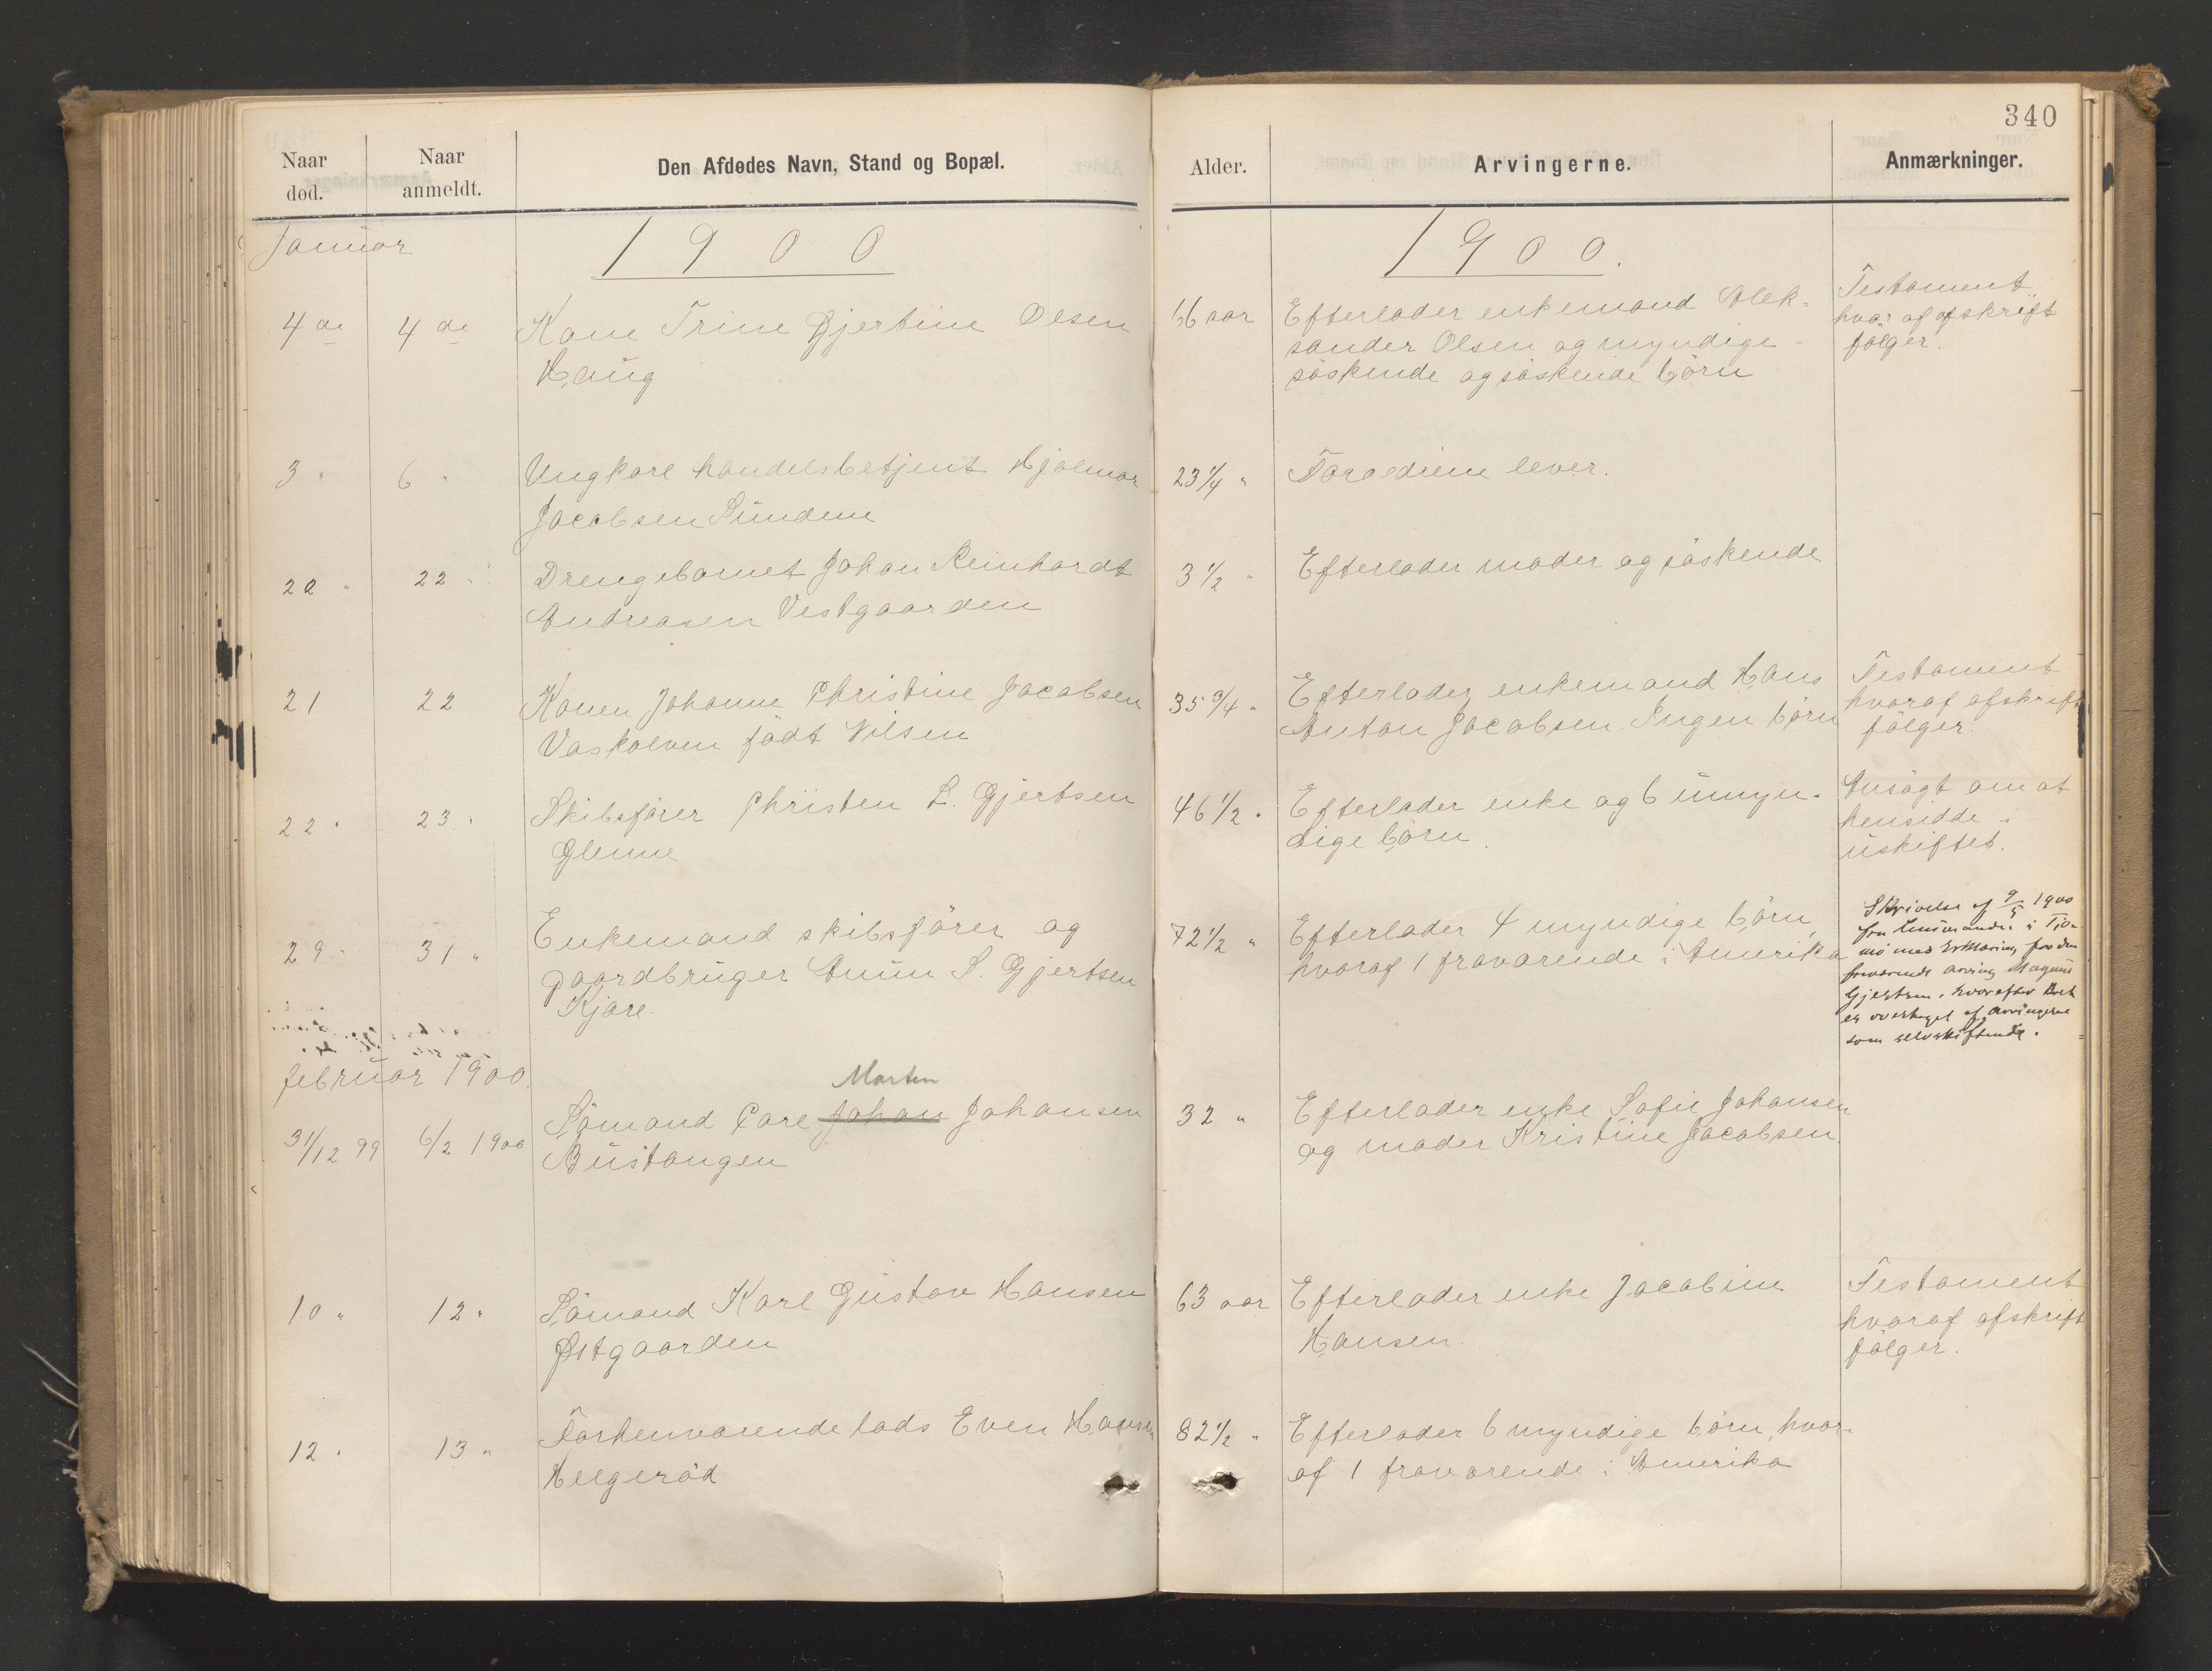 340
Naar død.
Naar anmeldt.
Den Afdødes Navn, Stand og Bopæl.
Alder.
Arvingerne.
Anmærkninger.
Januar
1900
1900.
4de
4de
Kone Trine Gjertine Olsen
Haug
66 aar
Efterlader enkemand Alek-
sander Olsen og myndige
söskende og söskende börn
Testament
hvoraf afskrift
fölger.
3 "
6 "
Ungkarl handelsbetjent Hjalmar
Jacobsen Sundene
23 1/4 "
Foraldrene lever.
20 "
22 "
Drengebarnet Johan Reinhardt
Andreasen Vestgaarden
3 1/2 "
Efterlader moder og söskende
21
22
Konen Johanne Christine Jacobsen
Vaskalven födt Nilsen
35 3/4 "
Efterlader enkemand Hans
Anton Jacobsen. Ingen börn
Testament
hvoraf afskrift
fölger
22 "
23 "
Skibsförer Christen L. Gjertsen
Glenne
46 1/2 "
Efterlader enke og 6 umyn-
dige börn.
Ansögt om at
hensidde i
uskiftet.
29 "
31 "
Enkemand skibsförer og
gaardbruger Anun S. Gjertsen
Kjare.
72 1/2 "
Efterlader 4 myndige börn,
hvoraf 1 fravarende i Amerika
Skrivelse af 9/5 1900
fra Lensmanden i Tjö-
mö med Erklæring fra den
fraværende arving Magnus
Gjertsen, hvorefter Boet
er overtaget af arvingerne
som selvskiftende.
februar 1900.
31/12 99
6/2 1900
Sömand Carl Johan Johansen
Morten
Bustangen
32 "
Efterlader enke Sofie Johansen
og moder Kristine Jacobsen.
10 "
12 "
Sömand Karl Gustav Hansen
Østgaarden
63 aar
Efterlader enke Jacobine
Hansen.
Testament
hvoraf afskrift
fölger.
12 "
13 "
Forhenvarende lods Even Hansen
Helgeröd
82 1/2 "
Efterlader 6 myndige börn, hvor-
af 1 fravarende i Amerika